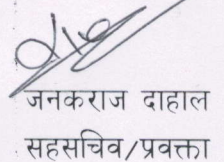 जनकराज दाहाल
सहसचिव/प्रवक्ता